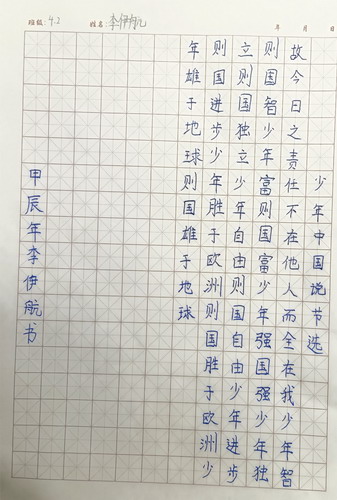 班级: 4.2 姓名: 李伊航 年 月 日
少年中国说节选
故今日之责任不在他人而全在我少年智
则国智少年富则国富少年强国强少年独
立则国独立少年自由则国自由少年进步
则国进步少年胜于欧洲则国胜于欧洲少
年雄于地球则国雄于地球
甲辰年李伊航书